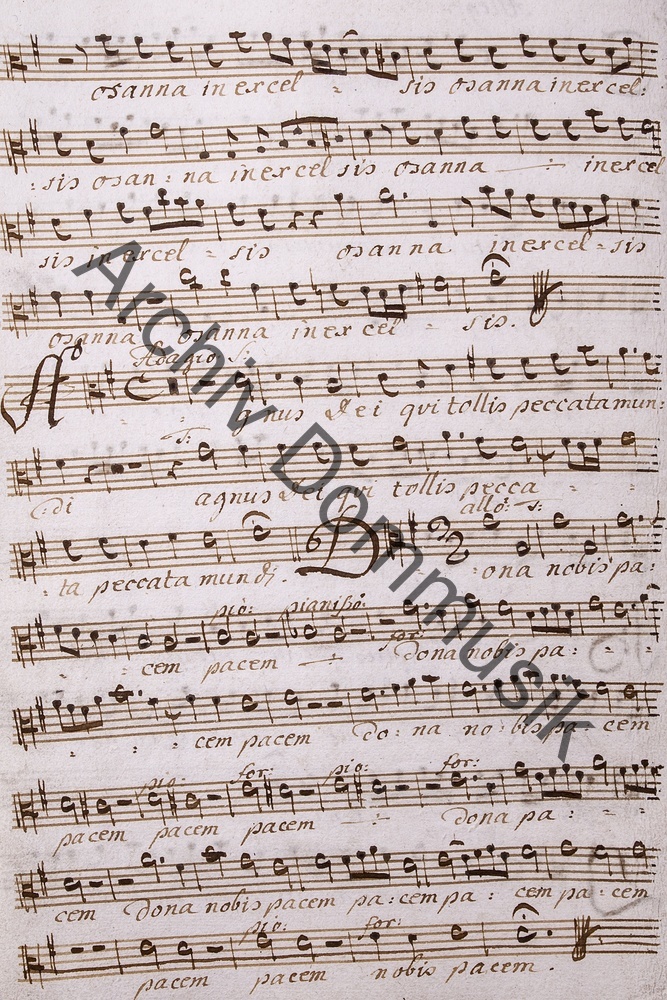 osanna in excel - sis osanna in excel:
: sis osan: na in excel sis osanna in excel
sis in excel - sis osanna in excel - sis
osanna osanna in excel - sis.
Adagio S:
A gnus Dei qui tollis peccata mun:
S:
: di agnus Dei qui tollis pecca - -
allo: S:
- ta peccata mundi. D ona nobis pa:
pio: pianißo: for
- - cem pacem dona nobis pa: - -
- - - cem pacem do: na no: bis pa: cem
pio: for: pio: for:
pacem pacem pacem dona pa: - -
cem dona nobis pacem pa: cem pa: cem pa: cem
pio: for:
pacem pacem nobis pacem.
Archiv Dommusik